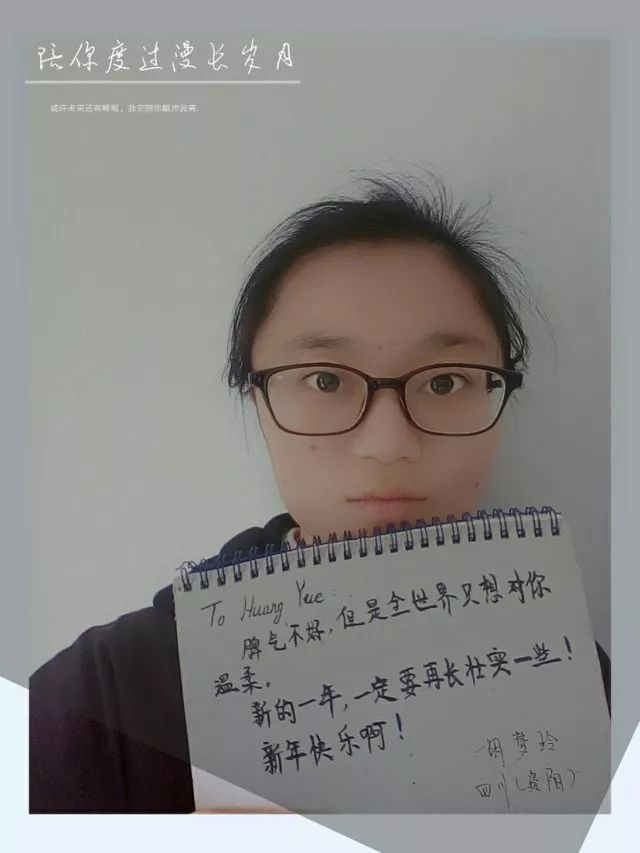 陪你度过漫长岁月
或许未来还有崎岖，我定陪你颠沛流离.
To Huang Yue:
脾气不好，但是全世界只想对你
温柔。
新的一年，一定要再长壮实一些！
新年快乐啊！
胡梦玲
四川(资阳)